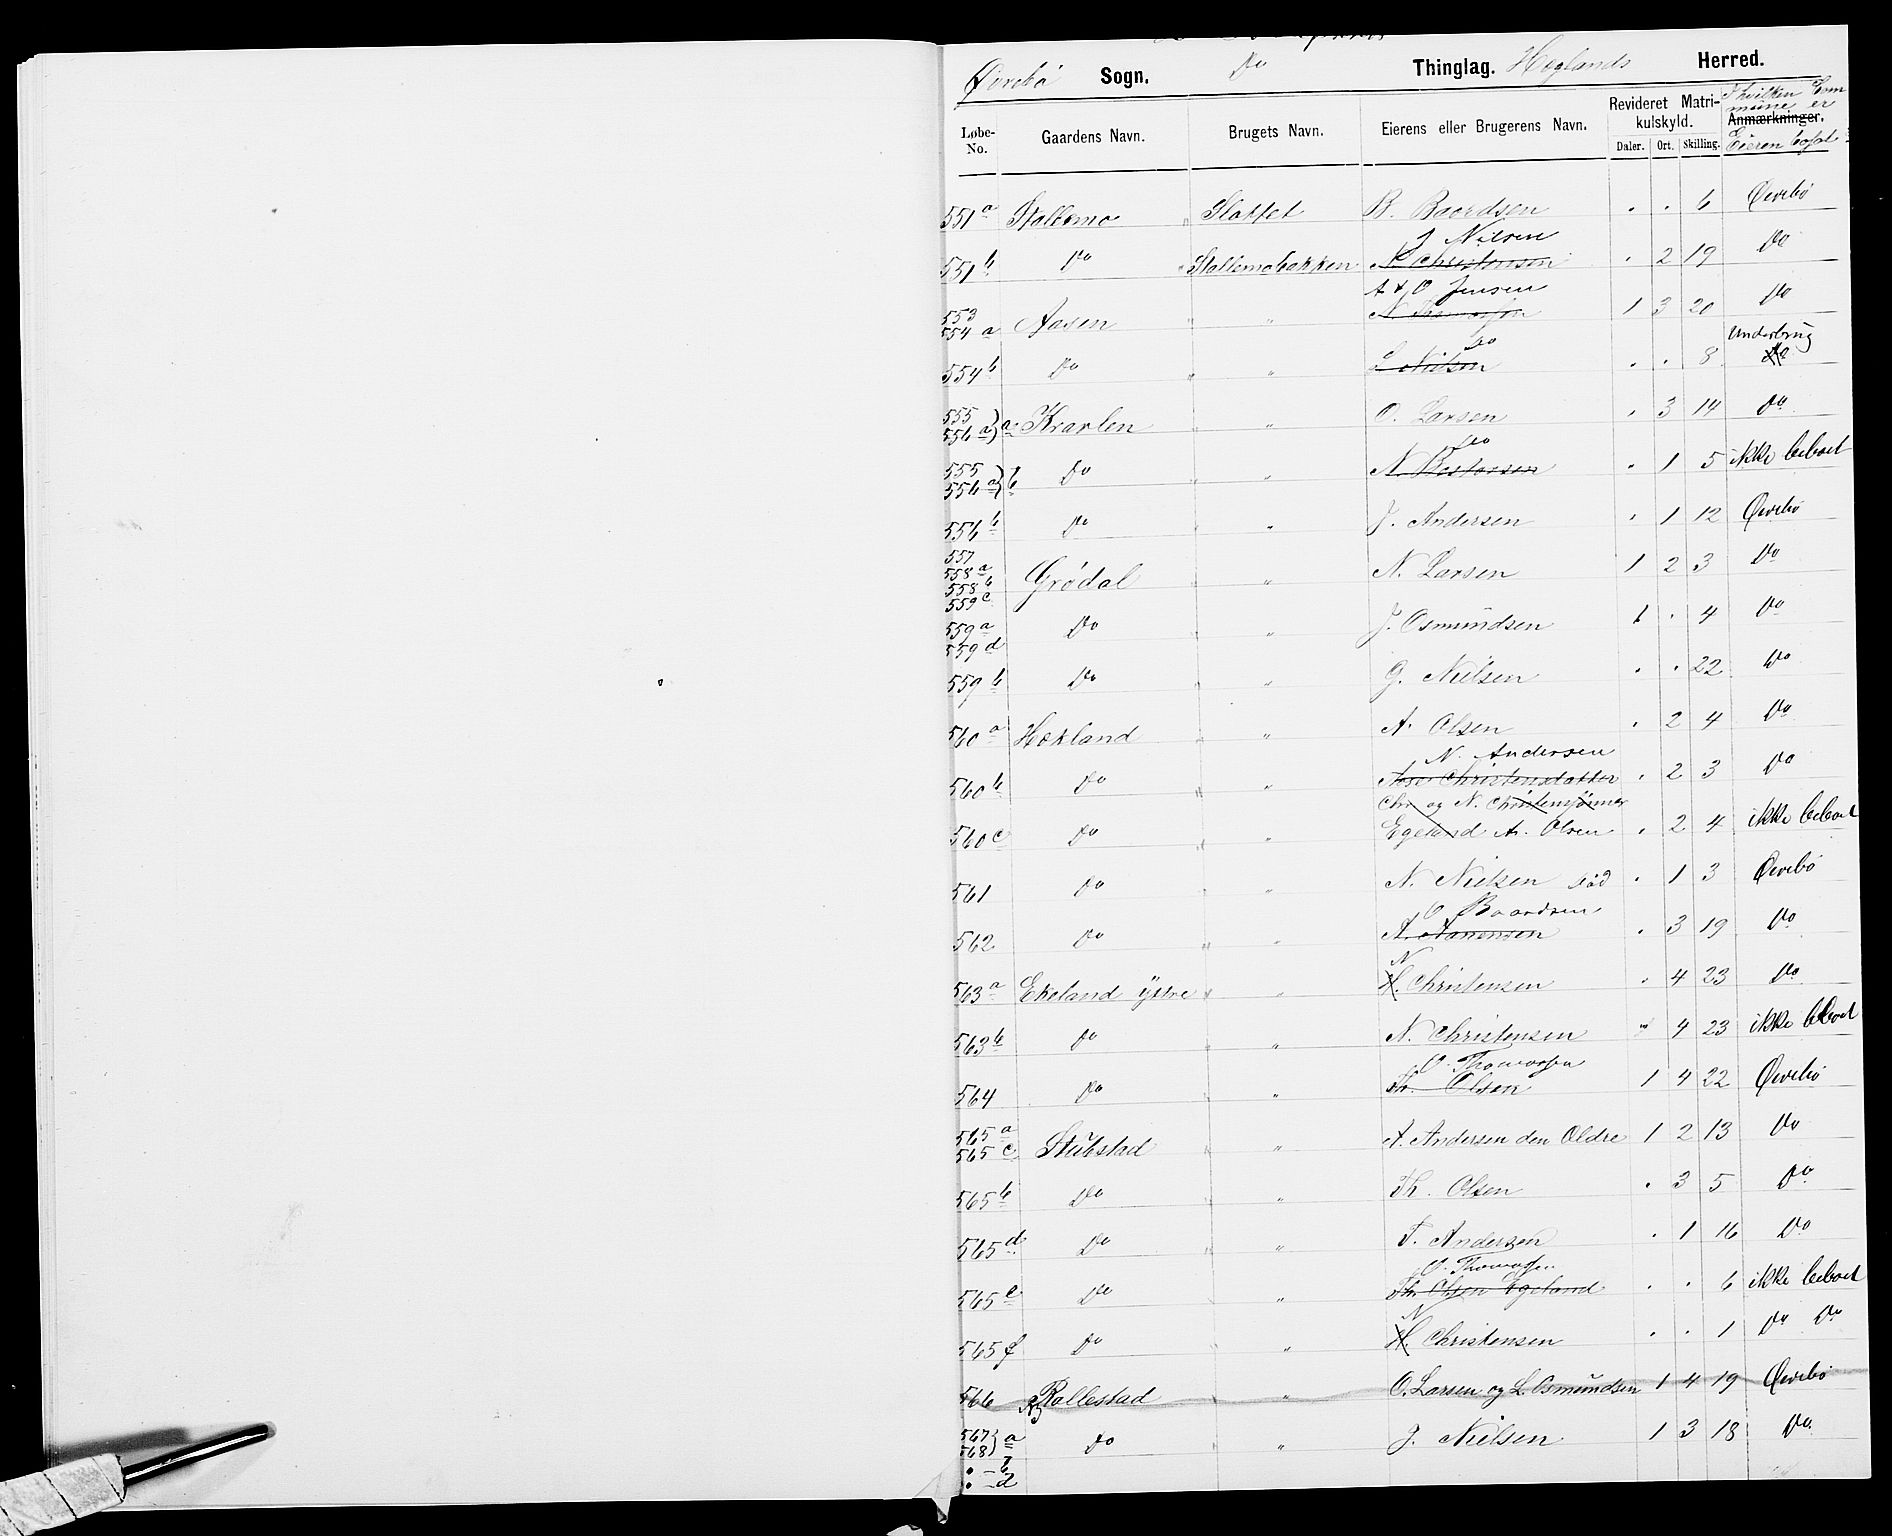 Øvrebø Sogn. Do Thinglag. Høglands Herred.
Løbe-No. Gaardens Navn. Brugets Navn. Eierens eller Brugerens Navn. Revideret Matrikulskyld. I hvilken Commune er
Anmærkninger.
Daler. Ort. Skilling. Eieren bosat
551 a Stallemo " Slottet B. Baardsen . . 6 Øvrebø
J Nilsen
551 b Do Stallemobakken N Christensen . 2 19 Do
A & O Jensen
553
554 a Aasen " " N. Thomassen 1 3 20 Do
Do Underbrug
554 b Do " " L Nilsen . . 8 Do
555
556 a) a Kvarlen " " O. Larsen . 3 14 Do
Do
555
556 a) b Do " " N. Bertorsen . 1 5 ikke beboet
556 b Do " " J. Andersen . 1 12 Øvrebø
557
558 a
558 b
559 c Grødal " " N. Larsen 1 2 3 Do
559 a
559 d Do " " J. Osmundsen 1 . 4 Do
559 b Do " " G. Nielsen . . 22 Do
560 a Hækland " " A. Olsen . 2 4 Do
N. Andersen
560 b Do " " Aase Christensdatter . 2 3 Do
Chr og N. Christensønner
560 c Do " " Egeland A. Olsen . 2 4 ikke beboet
561 Do " " N. Nielsen død . 1 3 Øvrebø
O Baardsen
562 Do " " A. Aanensen . 3 19 Do
N
563 a Ekeland ÿtre " " H. Christensen . 4 23 Do
563 b Do " N. Christensen " 4 23 ikke beboet
O. Thomassen
564 Do " Th. Olsen 1 4 22 Øvrebø
565 a
565 c Stubstad " " A. Andersen den Ældre 1 2 13 Do
565 b Do " " Th. Olsen . 3 5 Do
565 d Do " " T. Andersen . 1 16 Do
O. Thomassen
565 e Do " Th. Olsen Egeland . . 6 ikke beboet
N
565 f Do " H. Christensen . . 1 Do Do
566 Rallestad " O. Larsen og L. Osmundsen 1 4 19 Øvrebø
567
568) a Do " " J. Nielsen 1 3 18 Do
" - b
" - d